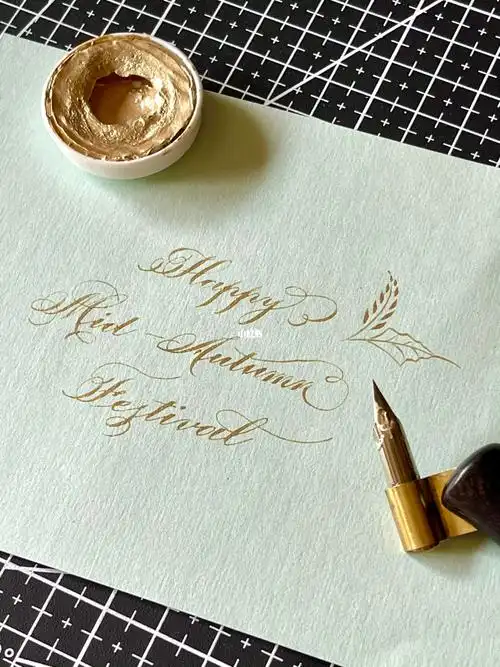 Happy
Mid-Autumn
Festival